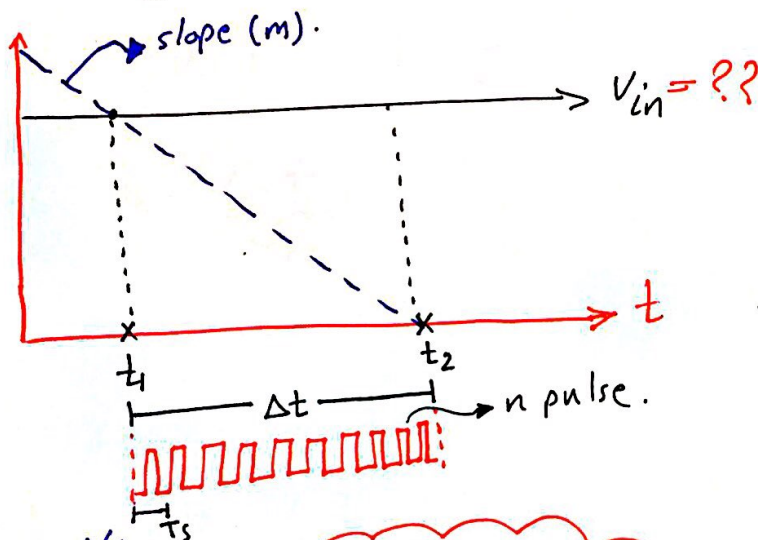 slope (m).
Vin = ??
t
t1
t2
Δt
n pulse.
Ts